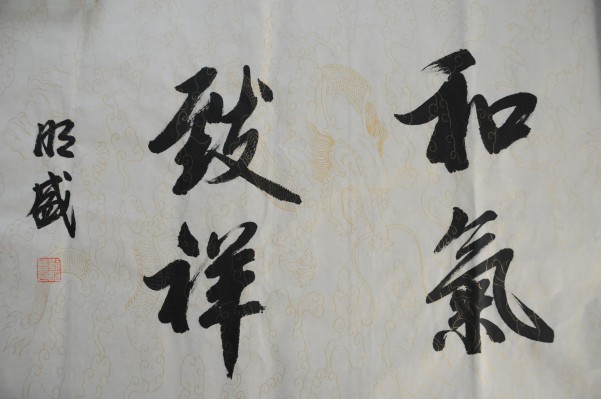 和氣
致祥
明盛